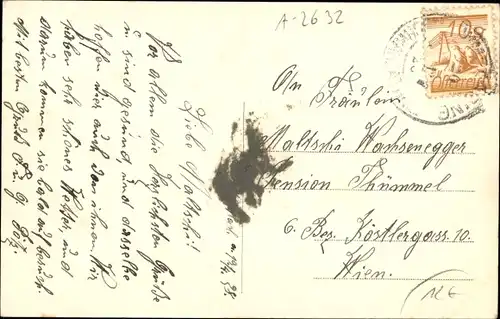 A-2632
10g
Österreich
Liebe Maltschi!
Vor allem die herzlichsten Grüße
u. sind gesund und dasselbe
hoffen wir auch von ihnen. Wir
haben sehr schönes Wetter, und
darum kommen sie bald auf besuch.
Mit besten Gruß
An
Fräulein
Maltschi Wachsenegger
Pension Thümmel
6. Bez. Köstlergass. 10.
Wien.
12 €